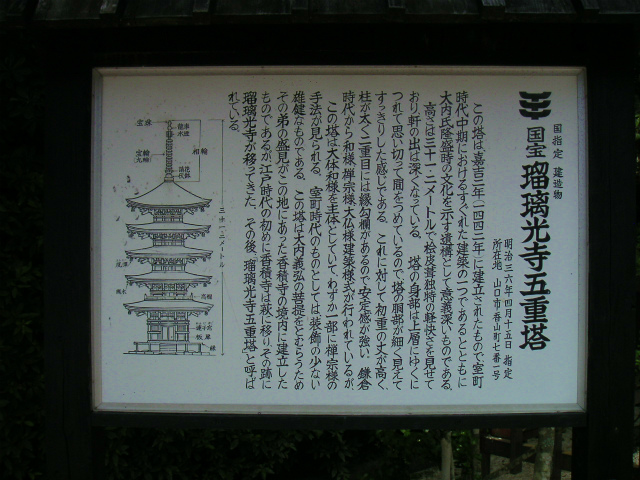 国指定 建造物
国宝 瑠璃光寺五重塔
明治三六年四月十五日 指定
所在地 山口市香山町七番一号
この塔は嘉吉二年(一四四二年)に建立されたもので、室町
時代中期におけるすぐれた建築の一つであるとともに
大内氏隆盛時の文化を示す遺構として意義深いものである。
高さは三十一・二メートルで桧皮葺独特の軽快さを見せて
おり軒の出は深くなっている。 塔の身部は上層にゆくに
つれて思い切って面をつめているので、塔の胴部が細く見えて
すっきりした感じである。これに対して初重の丈が高く、
柱が太く二重目には縁勾欄があるので安定感が強い。鎌倉
時代から和様、禅宗様、大仏様建築様式が行われているが、
この塔は大体和様を主体としていて、わずか一部に禅宗様の
手法が見られる。 室町時代のものとしては装飾の少ない
雄健なものである。この塔は大内義弘の菩提をとむらうため
その弟の盛見がこの地にあった香積寺の境内に建立した
ものであるが江戸時代の初めに香積寺は萩に移り、その跡に
瑠璃光寺が移ってきた。その後、「瑠璃光寺五重塔」と呼ば
れている。
宝珠
竜車
水煙
相輪
宝輪
九輪
三十一・二メートル
高欄
板扉
縁